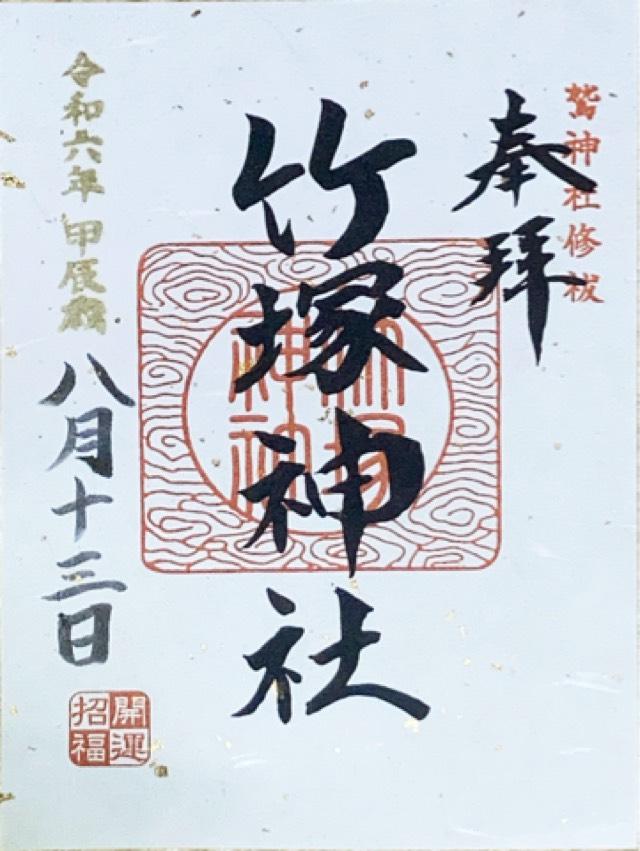 鷲神社修祓
奉拝
竹塚神社
竹塚
神社
令和六年 甲辰歳
八月十三日
開運
招福